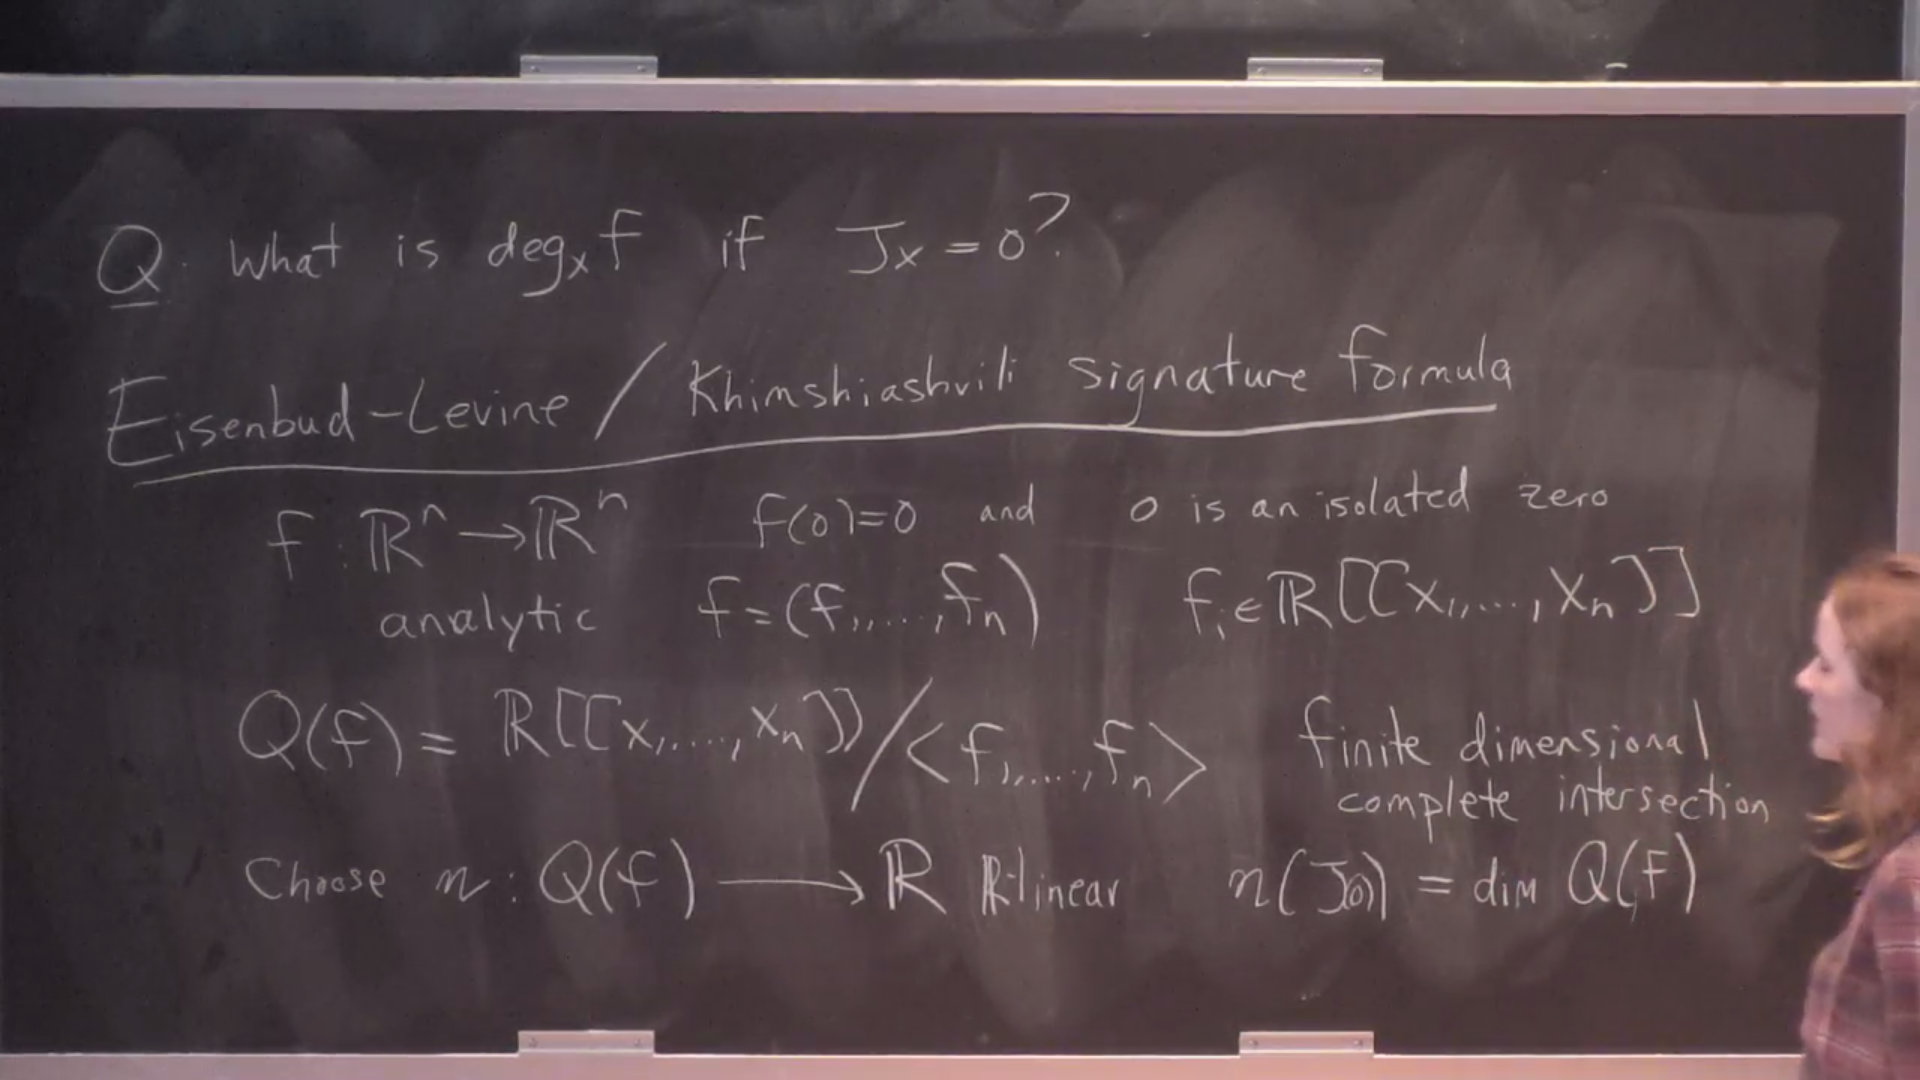 Q. What is deg_x f if J_x = 0?
Eisenbud-Levine / Khimshiashvili signature formula
f : ℝⁿ → ℝⁿ f(0)=0 and 0 is an isolated zero
analytic f = (f₁,...,fₙ) fᵢ ∈ ℝ[[x₁,...,xₙ]]
Q(f) = ℝ[[x₁,...,xₙ]] / <f₁,...,fₙ> finite dimensional
complete intersection
Choose η : Q(f) → ℝ ℝ-linear η(J(0)) = dim Q(f)